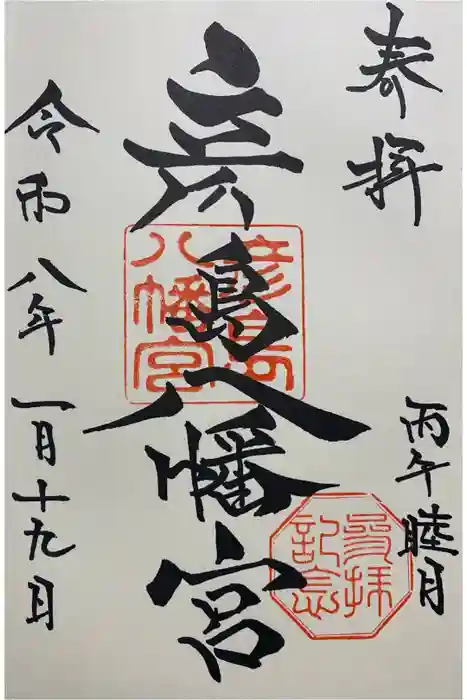 奉拝
丙午睦月
彦島八幡宮
彦島八幡宮
参拝記念
令和八年一月十九日